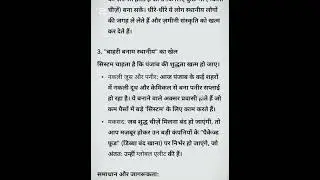 चीज़ें) बना सकें। धीरे-धीरे ये लोग स्थानीय लोगों
की जगह ले लेते हैं और ज़मीनी संस्कृति को खत्म
कर देते हैं।
3. "बाहरी बनाम स्थानीय" का खेल
सिस्टम चाहता है कि पंजाब की शुद्धता खत्म हो जाए।
• नकली जूस और पनीर: आज पंजाब के कई शहरों
में नकली दूध और केमिकल से बना पनीर सप्लाई
हो रहा है। ये बनाने वाले अक्सर प्रवासी होते हैं जो
कम पैसों में बड़े 'सिस्टम' के लिए काम करते हैं।
• मकसद: जब शुद्ध चीज़ें मिलना बंद हो जाएंगी, तो
आप मजबूर होकर उन बड़ी कंपनियों के 'पैकेज्ड
फूड' (डिब्बा बंद खाना) पर निर्भर हो जाएंगे, जो
अंततः उन्हीं ग्लोबल एलीट की हैं।
समाधान और जागरूकता: